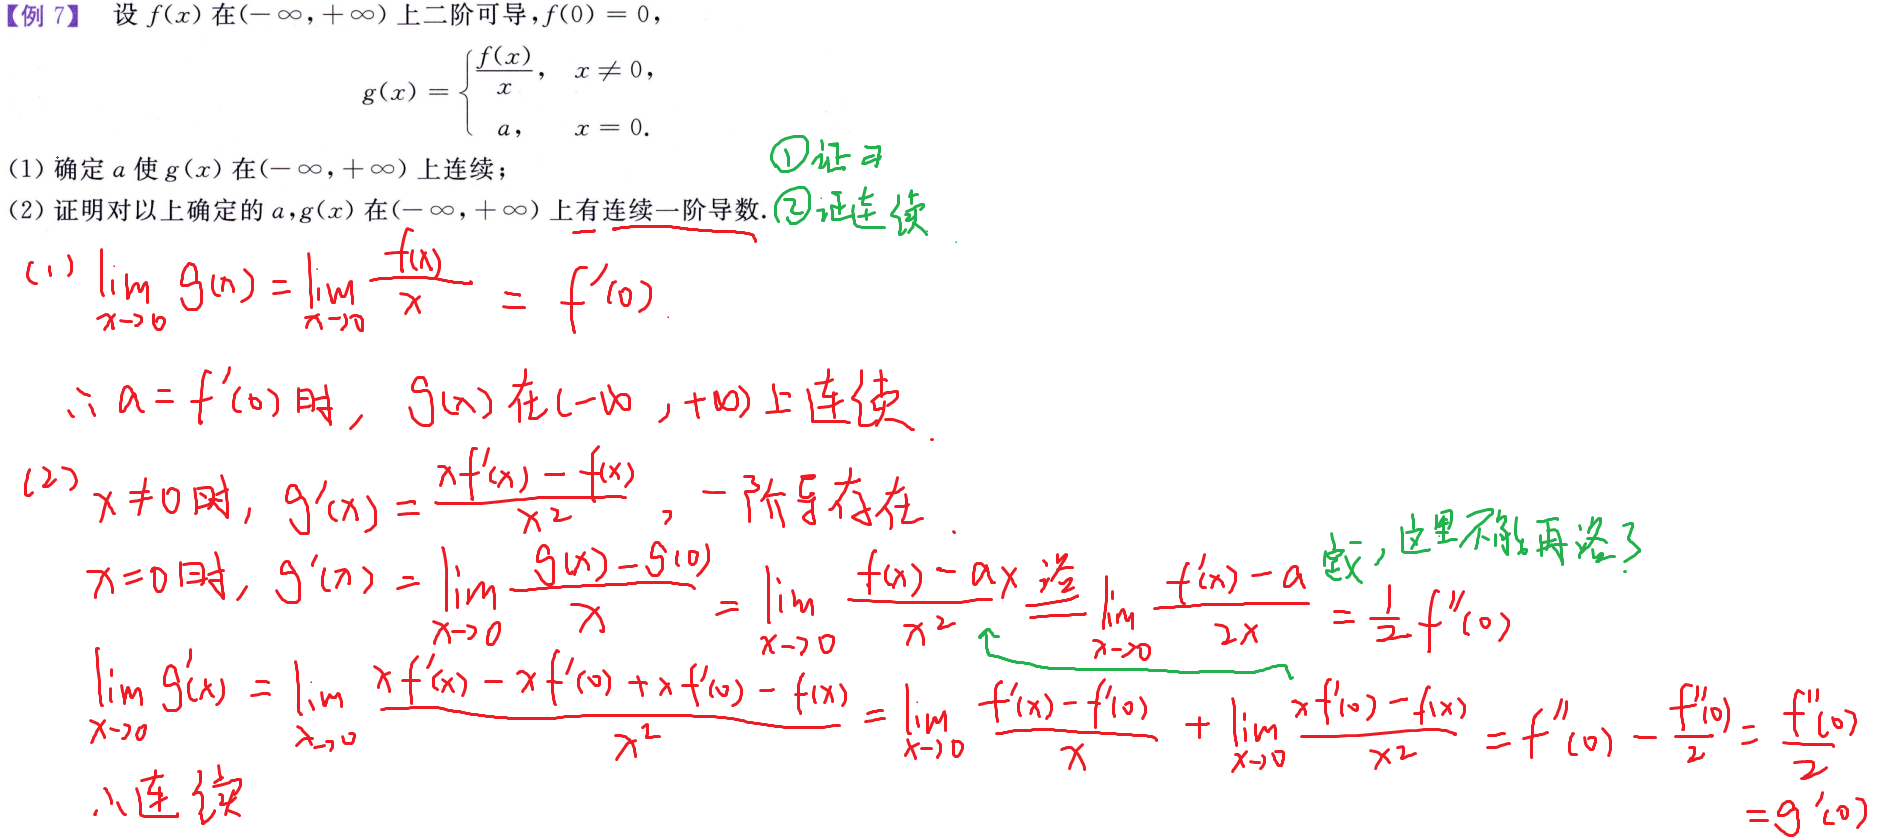 【例 7】 设 f(x) 在(-∞,+∞) 上二阶可导,f(0) = 0,
g(x) = { f(x)/x, x ≠ 0,
a, x = 0.
(1) 确定 a 使 g(x) 在(-∞,+∞) 上连续;
①证可
(2) 证明对以上确定的 a,g(x) 在(-∞,+∞) 上有连续一阶导数.
②证连续
(1) lim x→0 g(x) = lim x→0 f(x)/x = f′(0)
∴ a = f′(0) 时, g(x) 在 (-∞,+∞) 上连续.
(2) x ≠ 0 时, g′(x) = (xf′(x) - f(x))/x², 一阶导存在.
x = 0 时, g′(x) = lim x→0 (g(x) - g(0))/x = lim x→0 (f(x) - ax)/x² 洛= lim x→0 (f′(x) - a)/2x = 1/2 f″(0)
定义, 这里不能再洛了
lim x→0 g′(x) = lim x→0 (xf′(x) - xf′(0) + xf′(0) - f(x))/x² = lim x→0 (f′(x) - f′(0))/x + lim x→0 (xf′(0) - f(x))/x² = f″(0) - f″(0)/2 = f″(0)/2
= g′(0)
∴ 连续